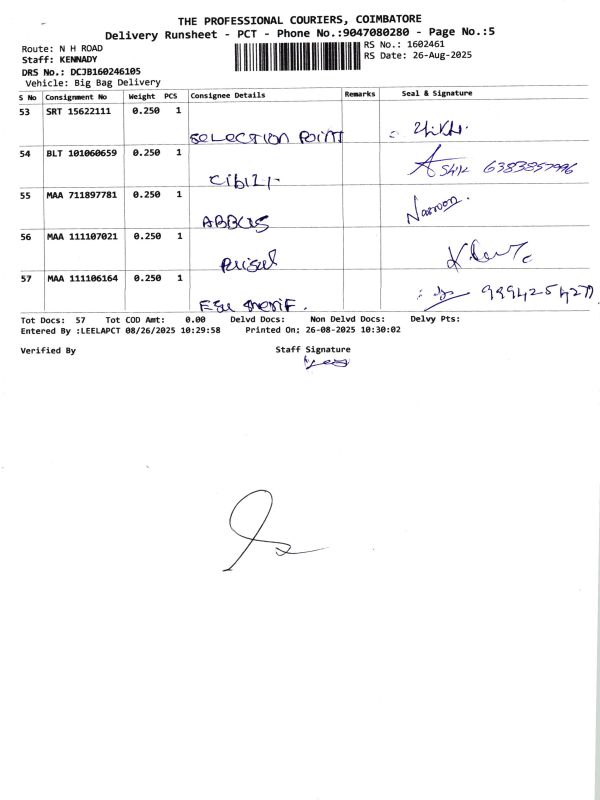 THE PROFESSIONAL COURIERS, COIMBATORE
Delivery Runsheet - PCT - Phone No.:9047080280 - Page No.:5
Route: N H ROAD
RS No.: 1602461
Staff: KENNADY
RS Date: 26-Aug-2025
DRS No.: DCJB160246105
Vehicle: Big Bag Delivery
S No Consignment No Weight PCS Consignee Details Remarks Seal & Signature
53 SRT 15622111 0.250 1
SELECTION POINT
54 BLT 101060659 0.250 1
Ashik 6383857996
55 MAA 711897781 0.250 1
Nasreen
ABBAS
56 MAA 111107021 0.250 1
57 MAA 111106164 0.250 1
Tot Docs: 57 Tot COD Amt: 0.00 Delvd Docs: Non Delvd Docs: Delvy Pts:
Entered By :LEELAPCT 08/26/2025 10:29:58 Printed On: 26-08-2025 10:30:02
Verified By Staff Signature